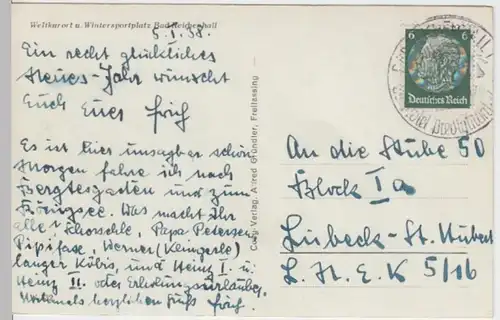 Weltkurort u. Wintersportplatz Bad Reichenhall
5. I. 38.
Ein recht glückliches
Neues-Jahr wünscht
Euch Euer Fritz
Es ist hier unsagbar schön
Morgen fahre ich nach
Bergtesgaden und zum
Königsee. Was macht Ihr
alle? Schorschle, Papa Petersen
Pipifax, Werner
langer Köbis, und Heinz I. u.
Heinz II. oder Erholungsurlauber.
herzlichen Gruß Fritz.
Cosy-Verlag, Alfred Gründler, Freilassing
6 6
Deutsches Reich
An die Stube 50
Block I a
Lübeck-St. Hubert
L. N. E. K 5/16